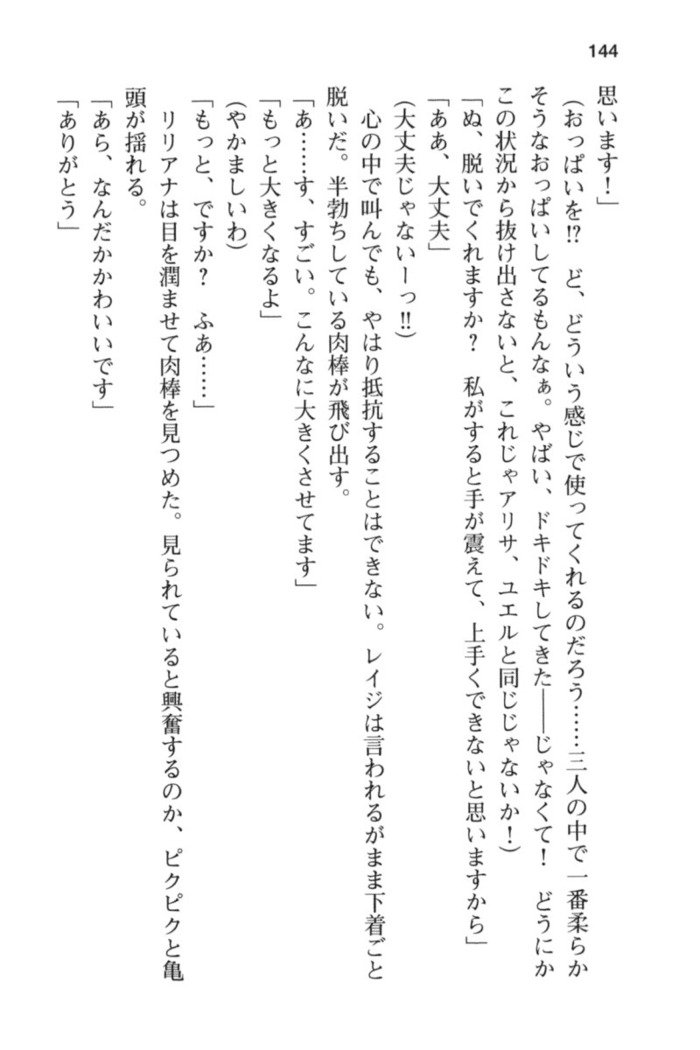 144
思います！」
（おっぱいを!?　ど、どういう感じで使ってくれるのだろう……三人の中で一番柔らか
そうなおっぱいしてるもんなぁ。やばい、ドキドキしてきた――じゃなくて！　どうにか
この状況から抜け出さないと、これじゃアリサ、ユエルと同じじゃないか！）
「ぬ、脱いでくれますか？　私がすると手が震えて、上手くできないと思いますから」
「ああ、大丈夫」
（大丈夫じゃないーっ!!）
　心の中で叫んでも、やはり抵抗することはできない。レイジは言われるがまま下着ごと
脱いだ。半勃ちしている肉棒が飛び出す。
「あ……す、すごい。こんなに大きくさせてます」
「もっと大きくなるよ」
（やかましいわ）
「もっと、ですか？　ふぁ……」
　リリアナは目を潤ませて肉棒を見つめた。見られていると興奮するのか、ピクピクと亀
頭が揺れる。
「あら、なんだかかわいいです」
「ありがとう」